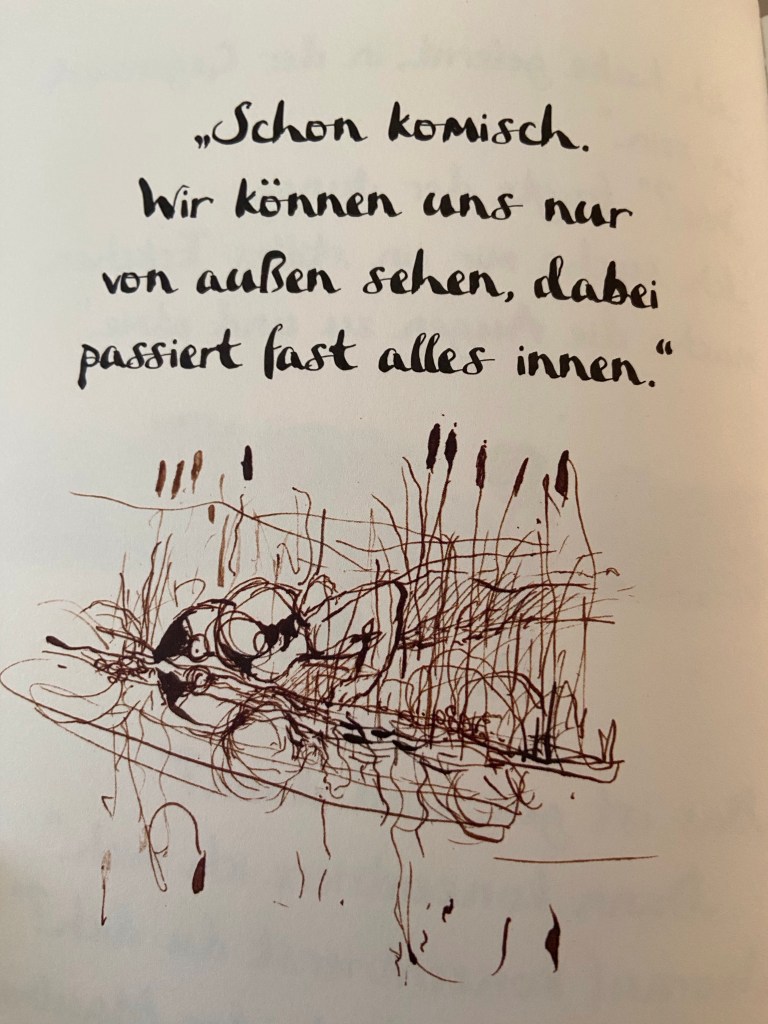 „Schon komisch.
Wir können uns nur
von außen sehen, dabei
passiert fast alles innen.“